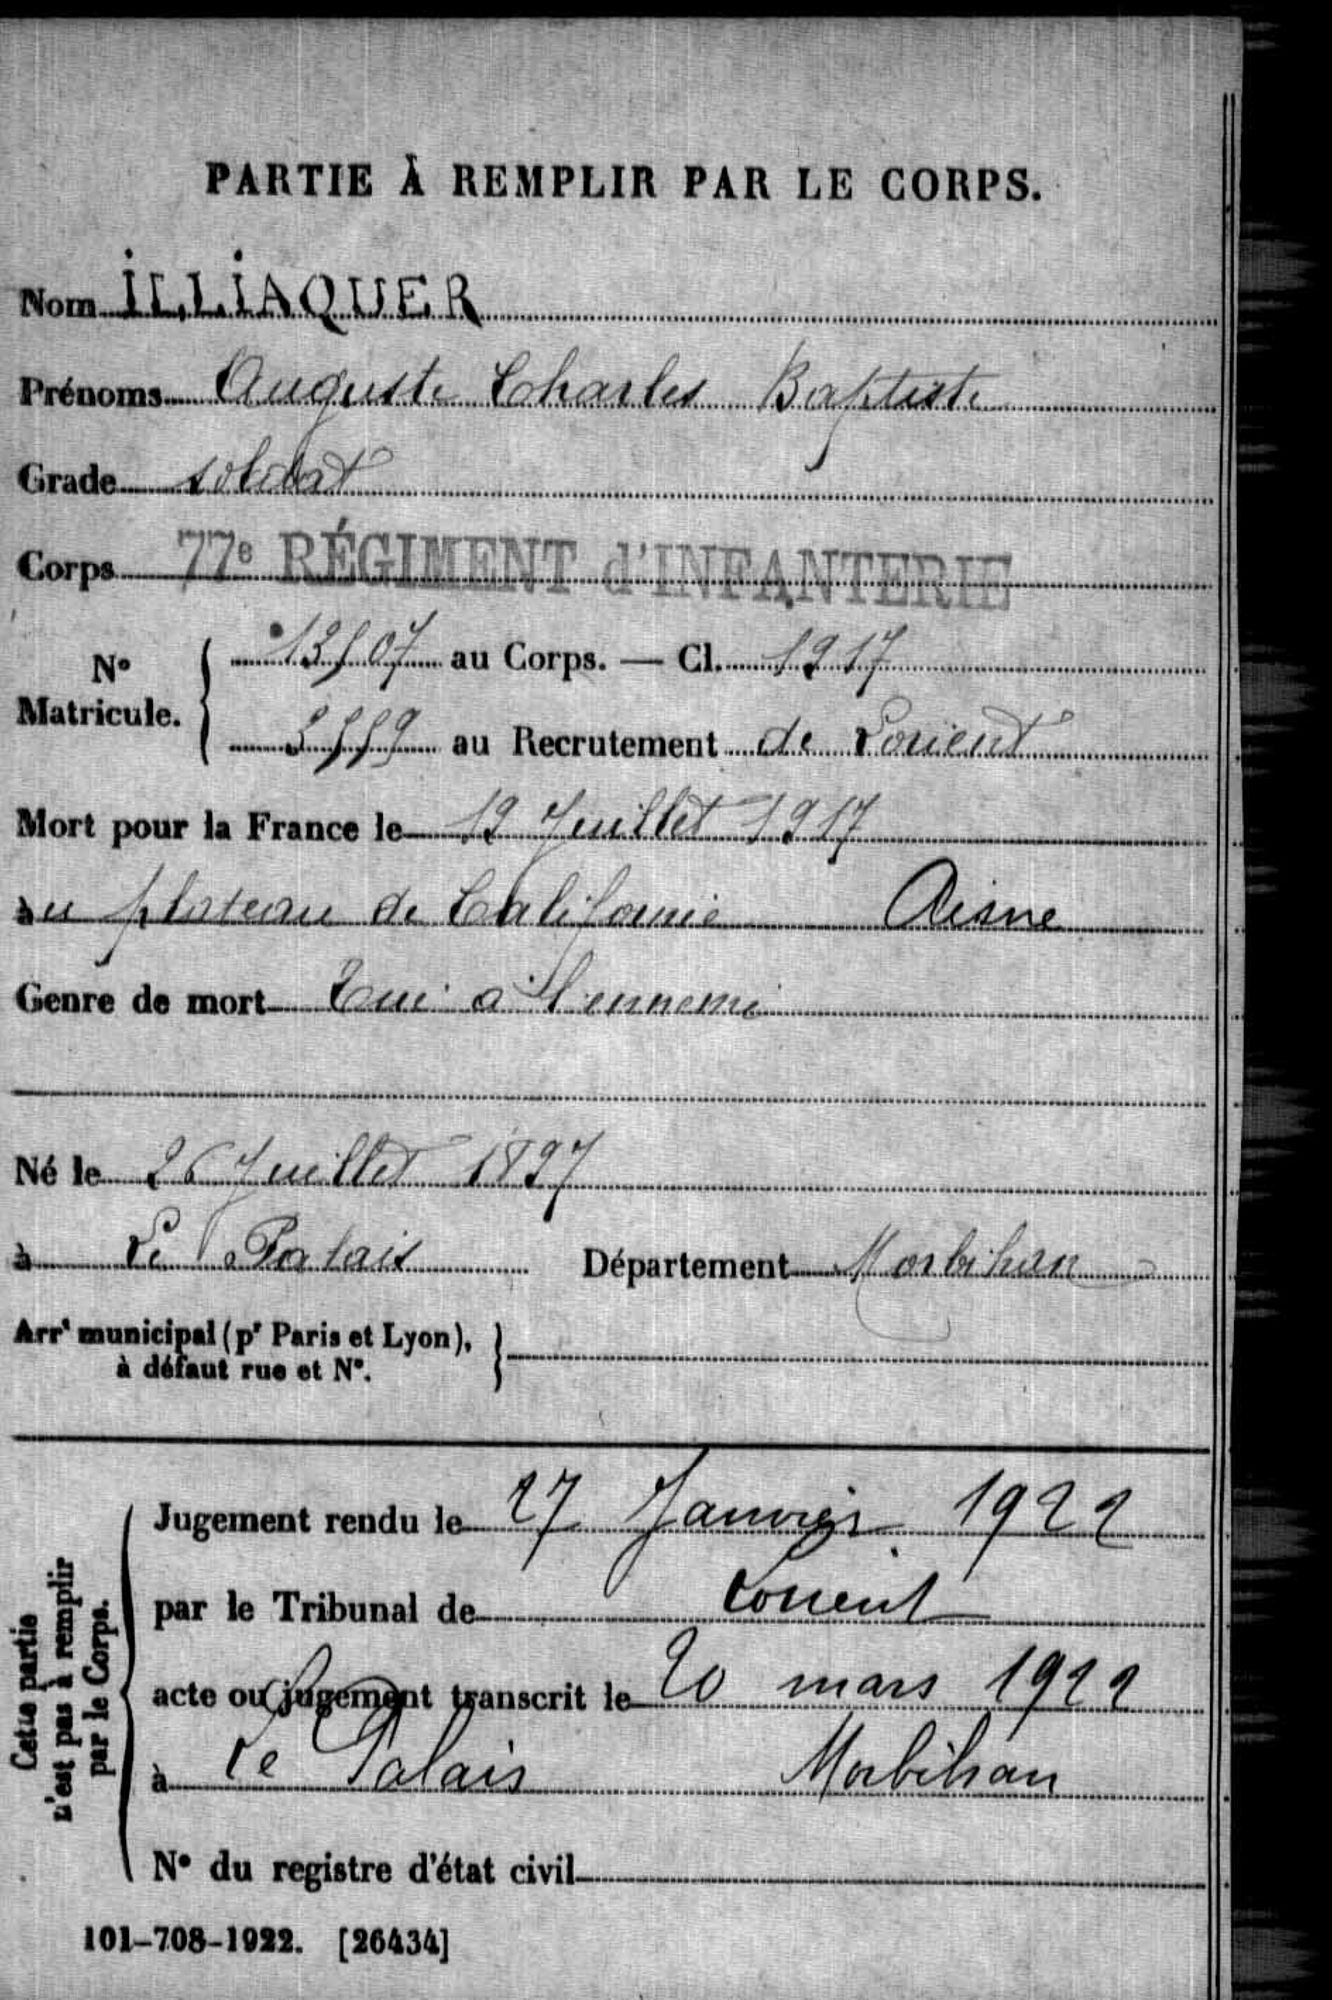 PARTIE À REMPLIR PAR LE CORPS.
Nom ILLIAQUER
Prénoms Auguste Charles Baptiste
Grade soldat
Corps 77e RÉGIMENT d'INFANTERIE
N° Matricule. 13507 au Corps. — Cl. 1917
3559 au Recrutement de Lorient
Mort pour la France le 19 Juillet 1917
au plateau de Californie Aisne
Genre de mort Tué à l'ennemi
Né le 26 Juillet 1897
à Le Palais Département Morbihan
Arrt municipal (pr Paris et Lyon),
à défaut rue et N°.
Cette partie
n'est pas à remplir
par le Corps.
Jugement rendu le 27 Janvier 1922
par le Tribunal de Lorient
acte ou jugement transcrit le 20 mars 1922
à Le Palais Morbihan
N° du registre d'état civil
101-708-1922. [26434]